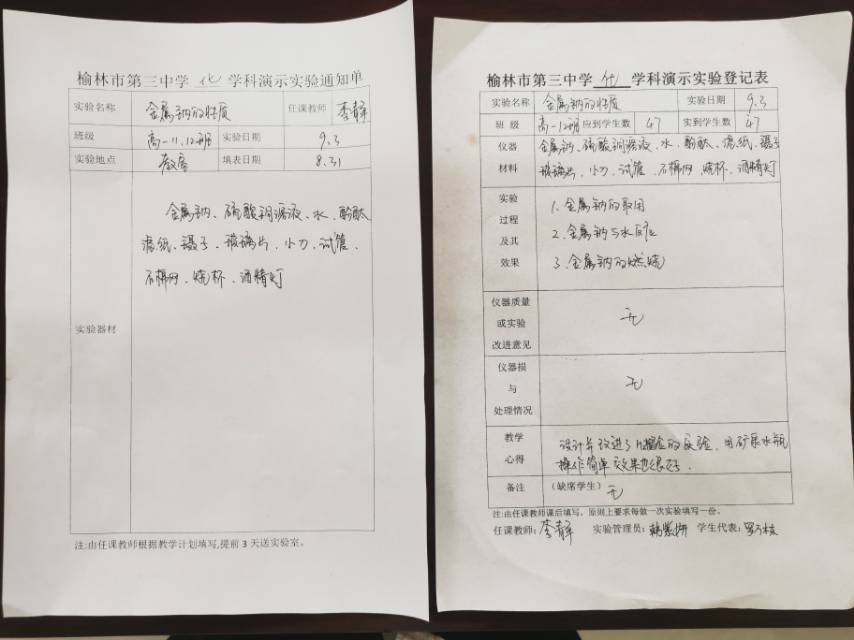 榆林市第三中学 化 学科演示实验通知单
实验名称 金属钠的性质 任课教师 李静
班级 高一11.12班 实验日期 9.3
实验地点 教室 填表日期 8.31
实验器材
金属钠、硫酸铜溶液、水、酚酞
滤纸、镊子、玻璃片、小刀、试管、
石棉网、烧杯、酒精灯
注:由任课教师根据教学计划填写,提前3天送实验室。
榆林市第三中学 化 学科演示实验登记表
实验名称 金属钠的性质 实验日期 9.3
班级 高一12班 应到学生数 47 实到学生数 47
仪器 金属钠、硫酸铜溶液、水、酚酞、滤纸、镊子
材料 玻璃片、小刀、试管、石棉网、烧杯、酒精灯
实验
过程
及其
效果
1.金属钠的取用
2.金属钠与水反应
3.金属钠的燃烧
仪器质量
或实验
改进意见
无
仪器损
与
处理情况
无
教学
心得
设计并改进了 的实验,用矿泉水瓶
操作简单 效果也很好.
备注 (缺席学生) 无
注:由任课教师课后填写,原则上要求每做一次实验填写一份。
任课教师: 李静 实验管理员: 学生代表: